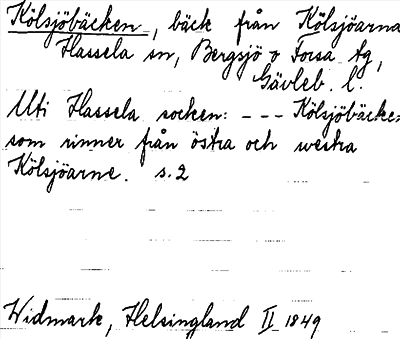 Kölsjöbäcken, bäck från Kölsjöarna
Hassela sn, Bergsjö o Forsa tg,
Gävleb. l.
Uti Hassela socken: --- Kölsjöbäcken
som rinner från östra och westra
Kölsjöarne. s. 2
Widmark, Helsingland II 1849